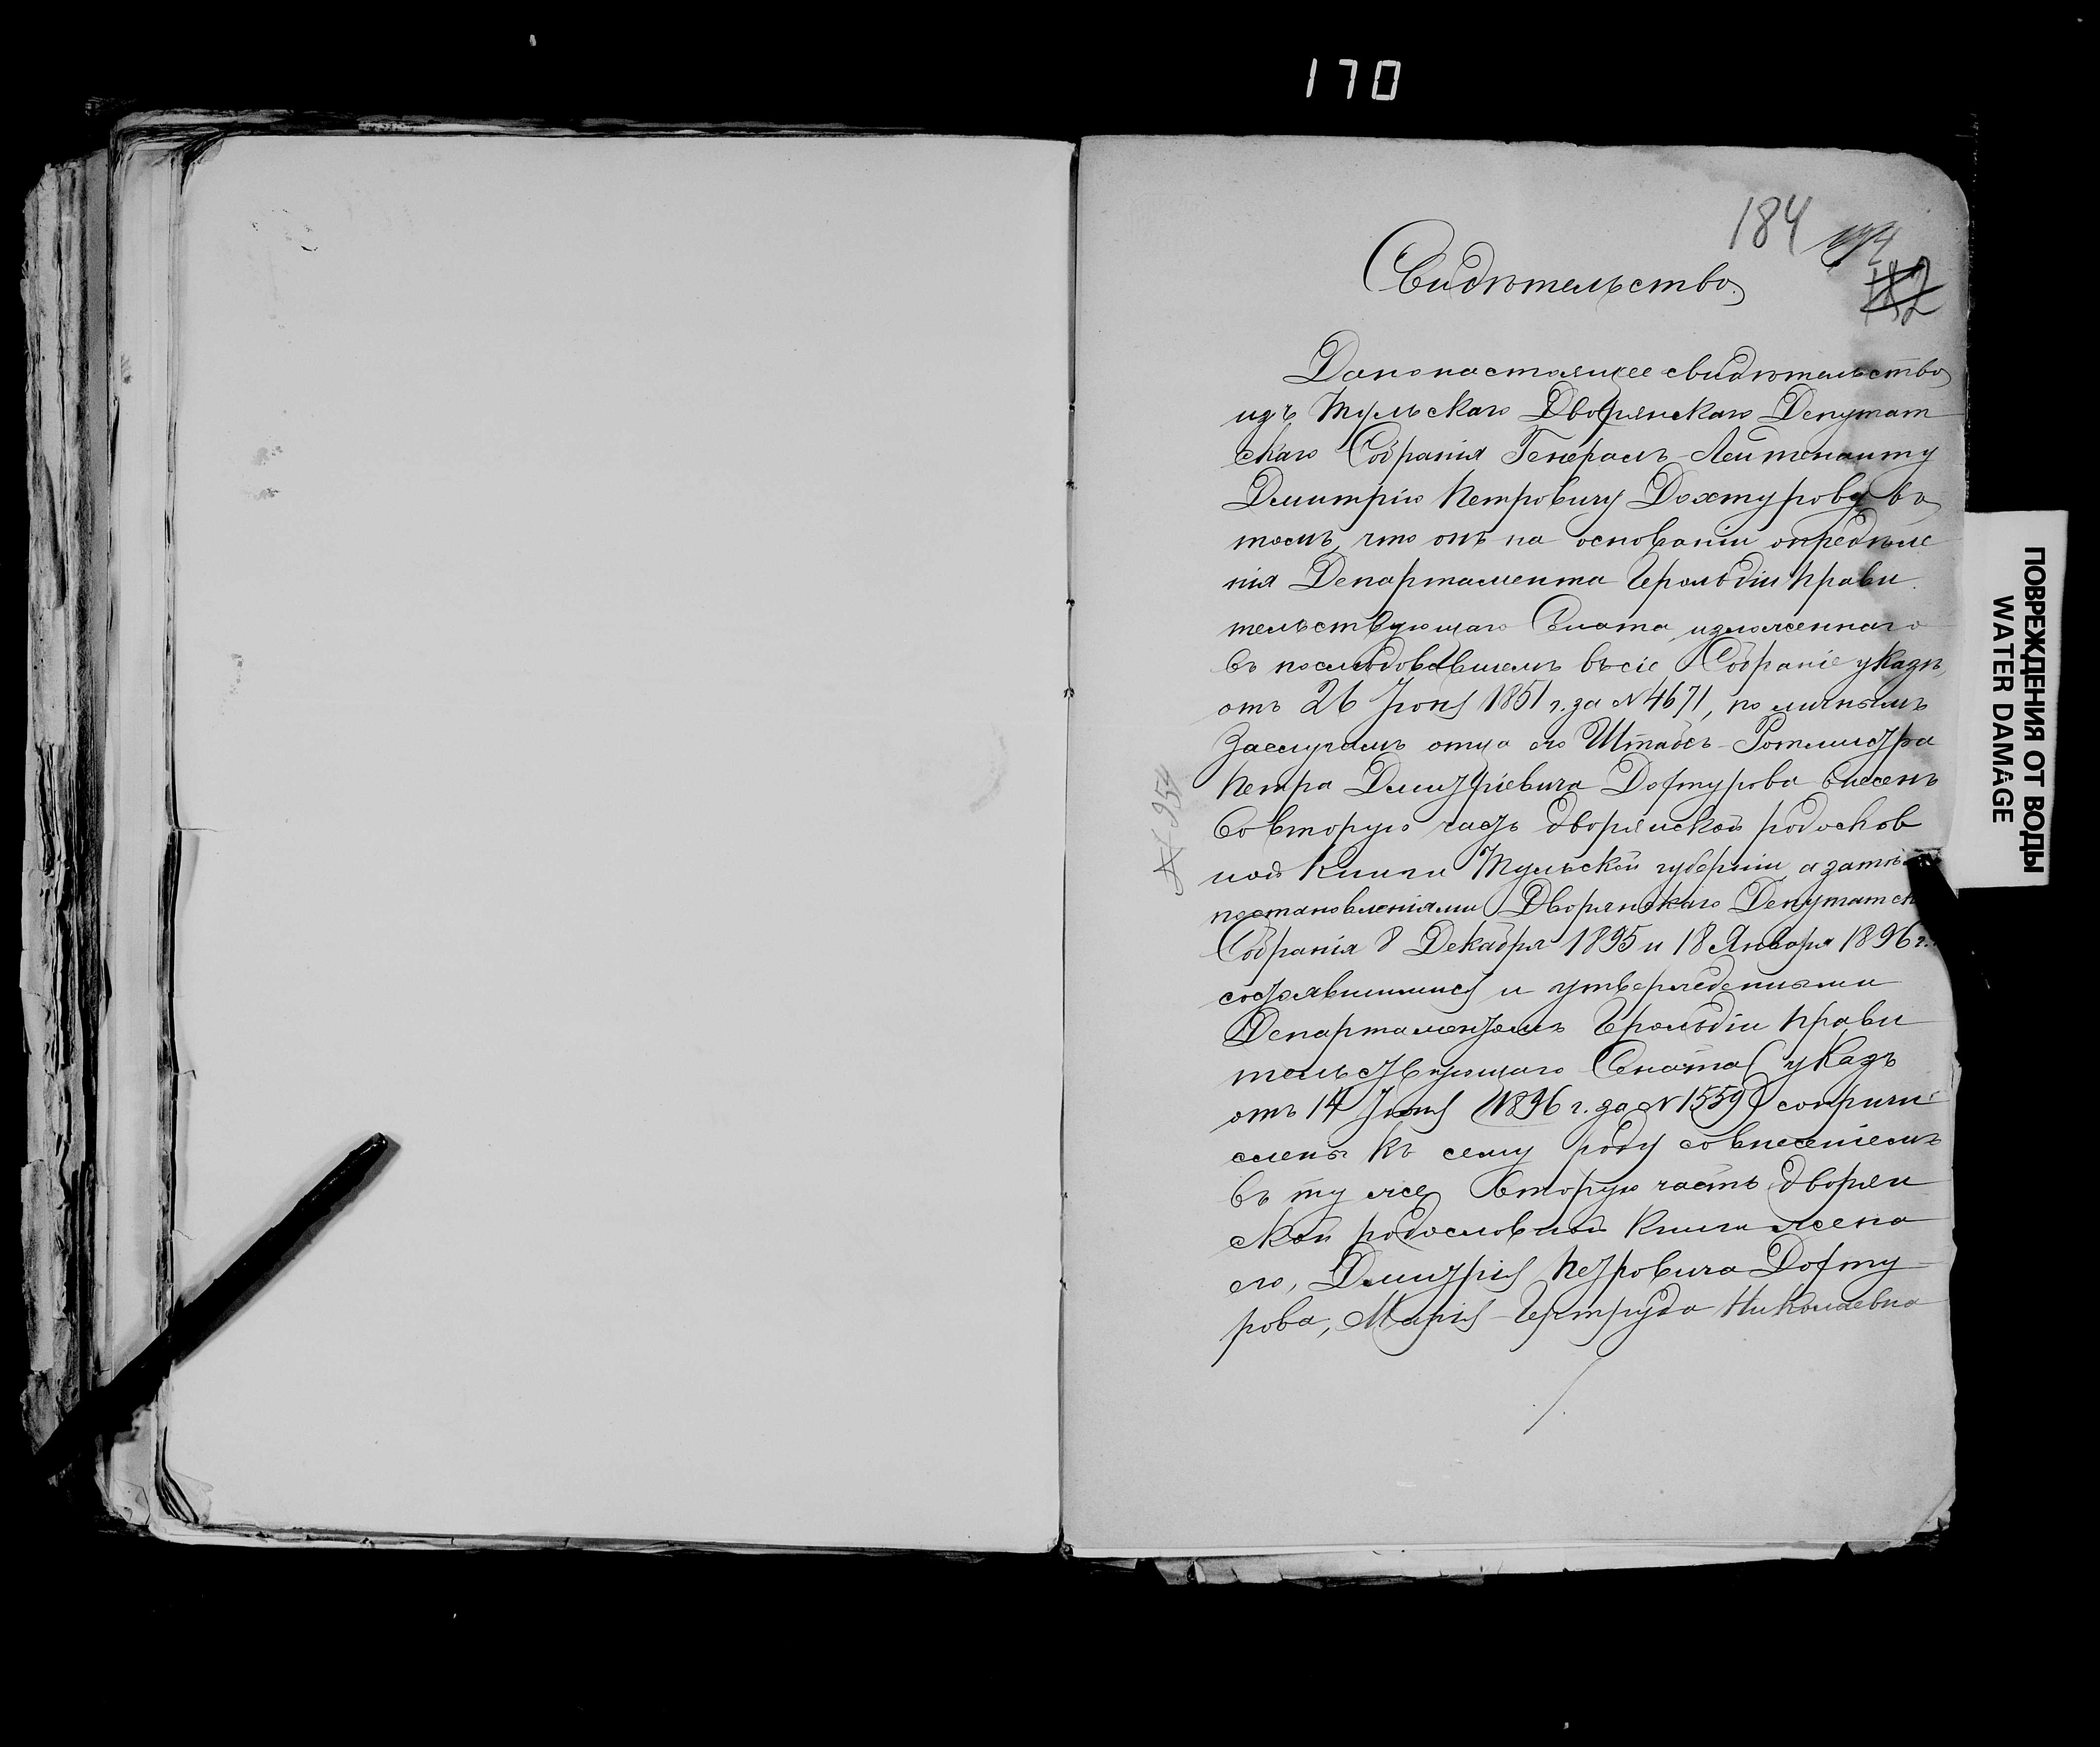 170
184
182
Свидѣтельство
Дано настоящее свидѣтельство
изъ Тульскаго Дворянскаго Депутат
скаго Собранія Генералъ-Лейтенанту
Дмитрію Петровичу Дохтурову въ
томъ, что онъ на основаніи опредѣле
нія Департамента Герольдіи Прави
тельствующаго Сената изложеннаго
въ послѣдовавшемъ въ сіе Собраніе указѣ,
отъ 26 Іюня 1851 г. за № 4671, по личнымъ
Заслугамъ отца его Штабсъ-Ротмистра
Петра Дмитріевича Дохтурова внесенъ
Во вторую часть дворянской родослов
ной Книги Тульской губерніи, а затѣмъ
постановленіями Дворянскаго Депутатск
Собранія 8 Декабря 1895 и 18 Января 1896 г.
состоявшимися и утвержденными
Департаментомъ Герольдіи Прави
тельствующаго Сената (указъ
отъ 14 Іюня 1896 г. за № 1559) сопричи
слены къ сему роду со внесеніемъ
въ ту же Вторую часть дворян
ской родословной Книги жена
его, Дмитрія Петровича Дохту-
рова, Марія-Гертруда Николаевна
№ 954
ПОВРЕЖДЕНИЯ ОТ ВОДЫ
WATER DAMAGE